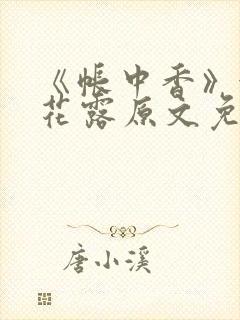 《帐中香》
花露原文免
唐小溪